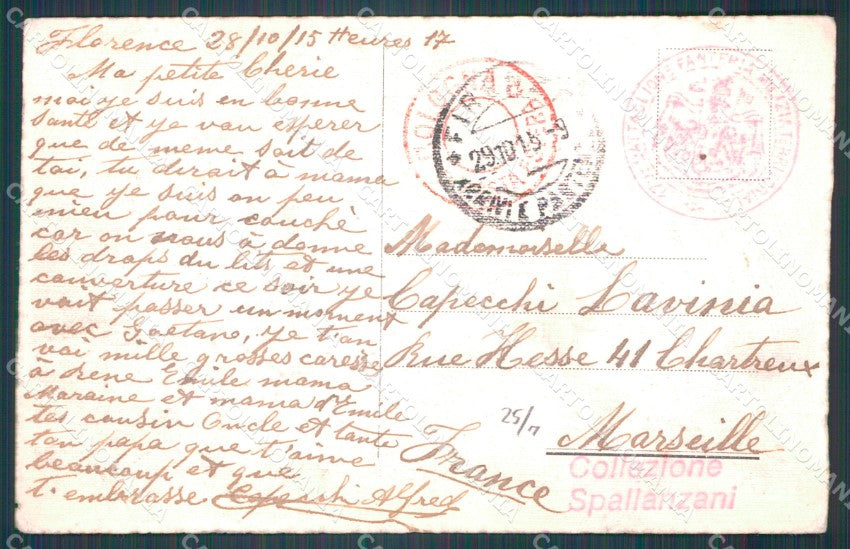 Florence 28/10/15 Heures 17
Ma petite Cherie
moi ye suis en bonne
santé et ye vau esperer
que de meme soit de
toi, tu dirait a mama
que ye suis on peu
mieu pour couché
car on nous à donne
les draps du lits et une
couverture ce soir ye
vait passer un moment
avec Gaetano, ye t'an
vai mille grosses caresse
à Irene Emile mama
Maraine et mama d'Emile
tes cousin Oncle et tante
ton papa que t'aime
beaucoup et que
t'embrasse Capecchi Alfred
29.10.15
Mademoiselle
Capecchi Lavinia
Rue Hesse 41 Chartreux
Marseille
France
25/11
Collezione
Spallanzani
CARTOLINOMANIA